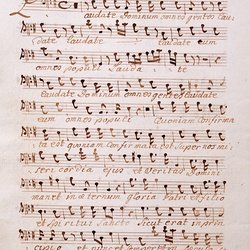 Laudate Dominum omnes gentes Lau:
date Laudate Laudate eum
omnes populi Lauda te
Laudate Dominum omnes gentes Laudate
eum omnes populi Quoniam Confirma
ta est quoniam Confirmata est Super nos mi:
seri cordia ejus et Veritas Domini
manet in æternum gloria Patri et filio
et Spiritui Sancto Sicut erat in prin
cipio et